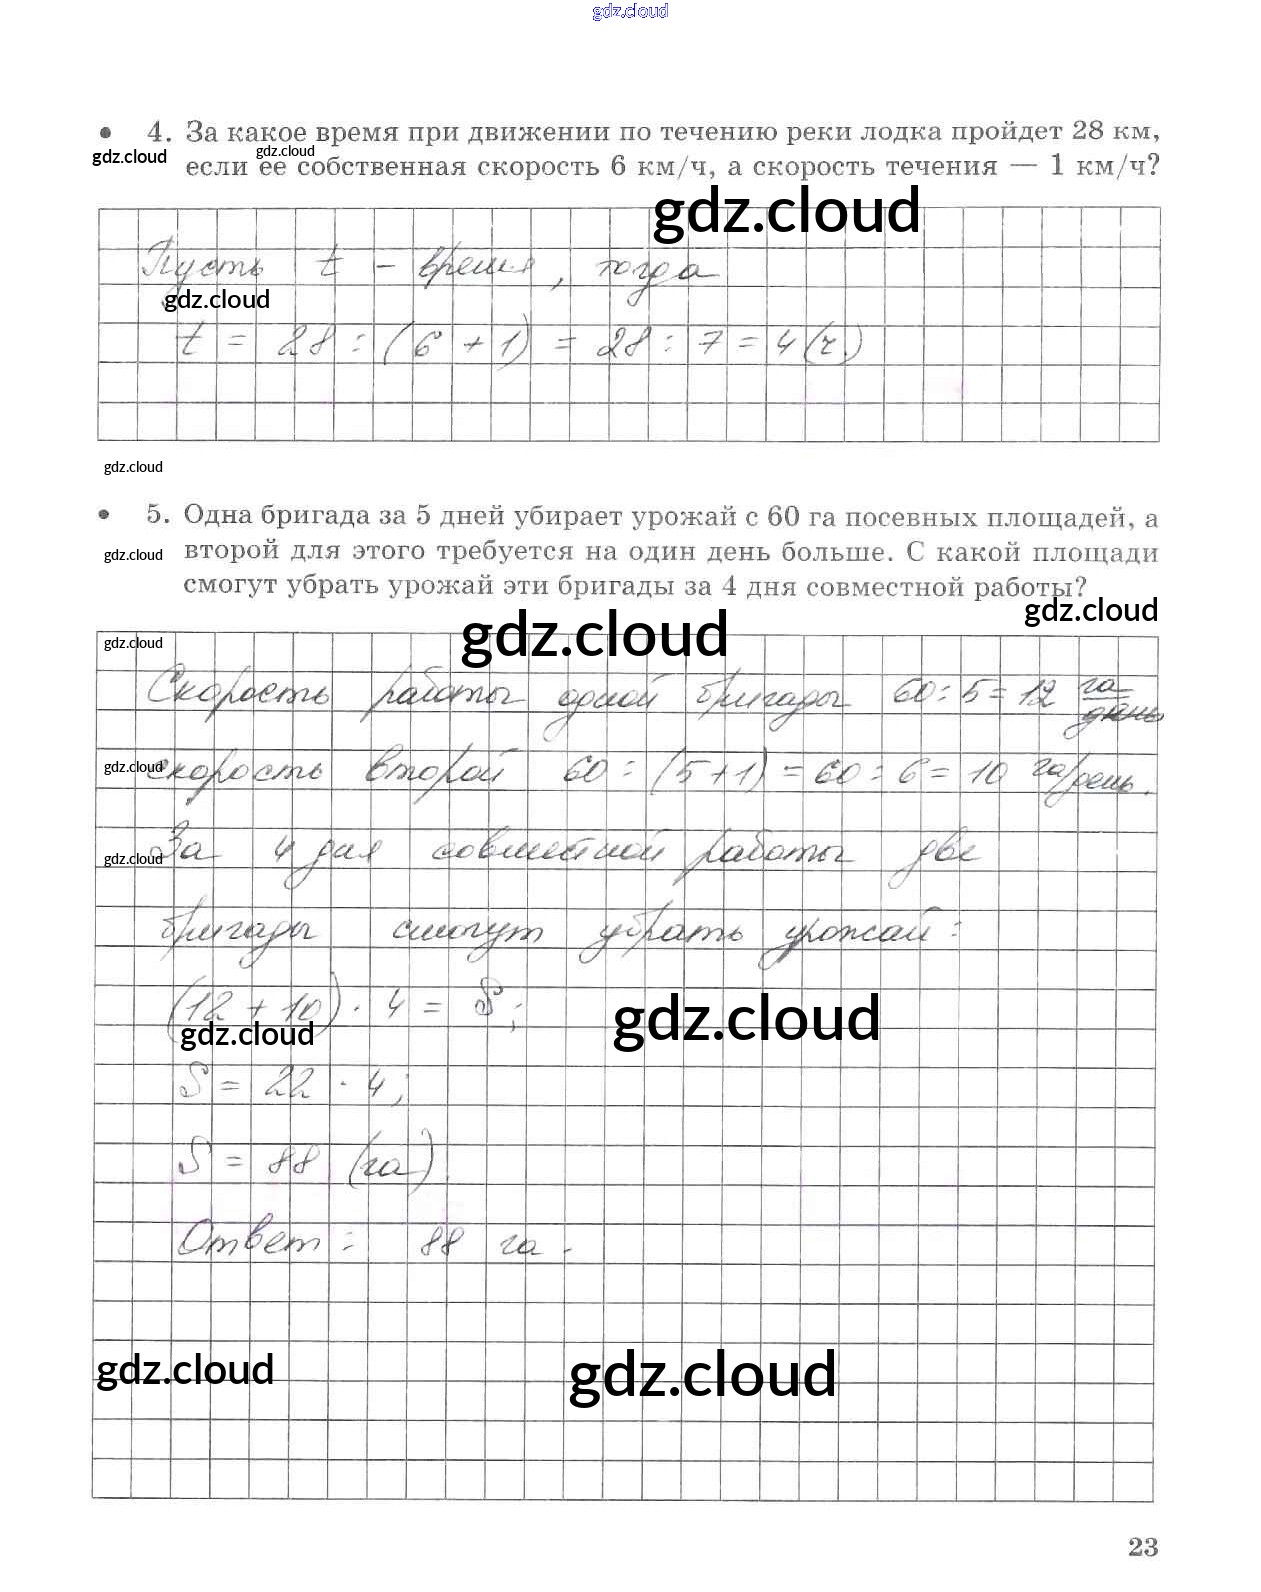 gdz.cloud
• 4. За какое время при движении по течению реки лодка пройдет 28 км,
gdz.cloud gdz.cloud
если ее собственная скорость 6 км/ч, а скорость течения — 1 км/ч?
gdz.cloud
Пусть t - время, тогда
gdz.cloud
t = 28 : (6 + 1) = 28 : 7 = 4 (ч.)
gdz.cloud
• 5. Одна бригада за 5 дней убирает урожай с 60 га посевных площадей, а
gdz.cloud
второй для этого требуется на один день больше. С какой площади
смогут убрать урожай эти бригады за 4 дня совместной работы?
gdz.cloud
gdz.cloud
gdz.cloud
Скорость работы одной бригады 60 : 5 = 12 га/день
gdz.cloud
скорость второй 60 : (5+1) = 60 : 6 = 10 га/день.
За 4 дня совместной работы две
gdz.cloud
бригады смогут убрать урожай:
(12 + 10) · 4 = S;
gdz.cloud
gdz.cloud
S = 22 · 4;
S = 88 (га)
Ответ: 88 га.
gdz.cloud
gdz.cloud
23